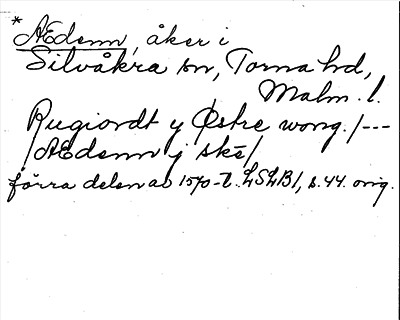 * AEdenn, åker i
Silvåkra sn, Torna hd,
Malm. l.
Rugiordt y Østre wong. /---
/AEdenn j skẽ/
förra delen av 1570-t. LSLB1, s. 44. orig.